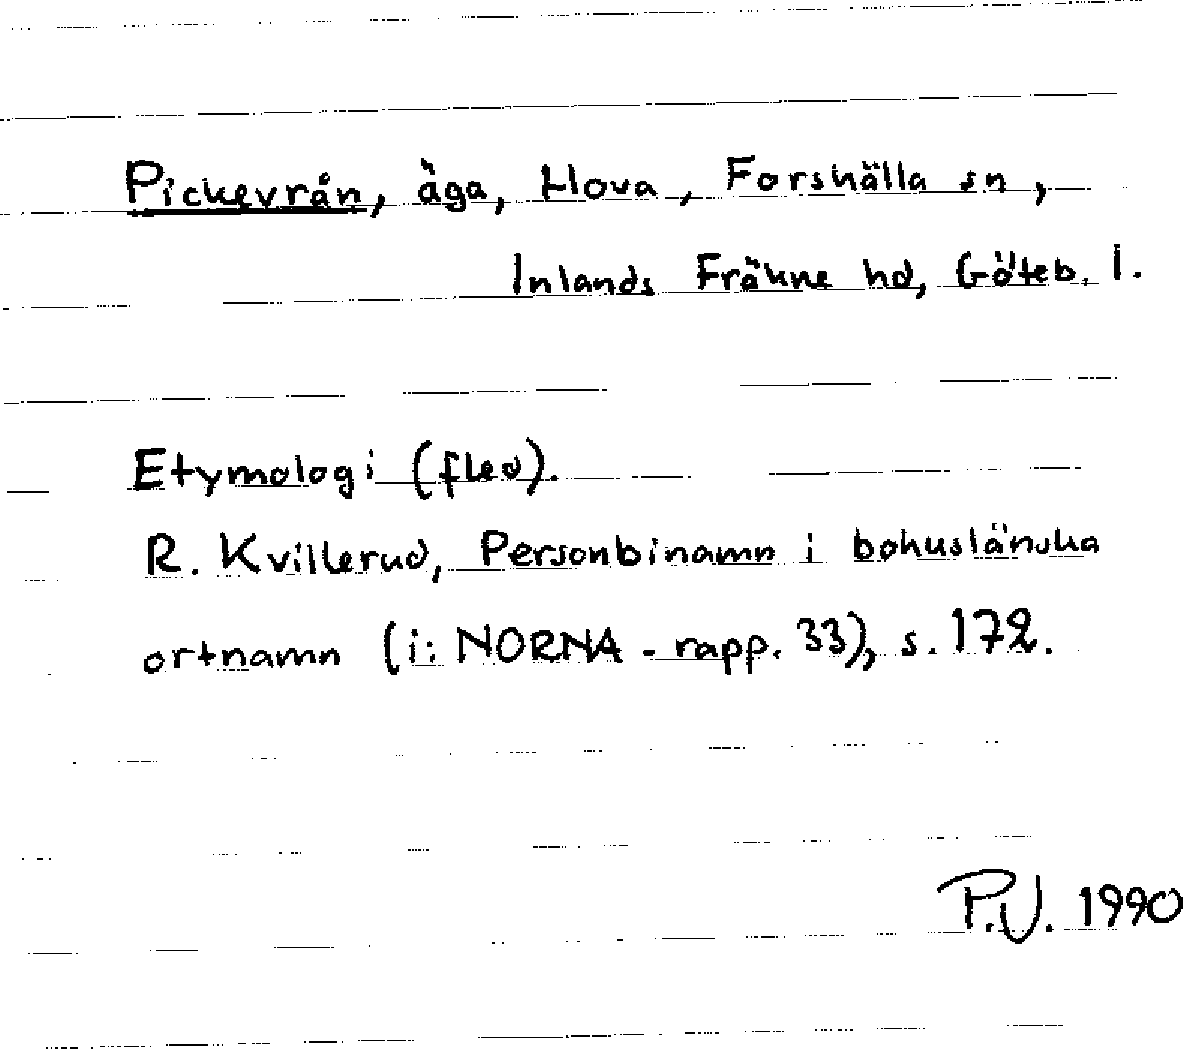 Pickevrån, äga, Hova, Forshälla sn,
Inlands Fräkne hd, Göteb. l.
Etymologi (fled).
R. Kvillerud, Personbinamn i bohuslänska
ortnamn (i: NORNA - rapp. 33), s. 172.
P.V. 1990